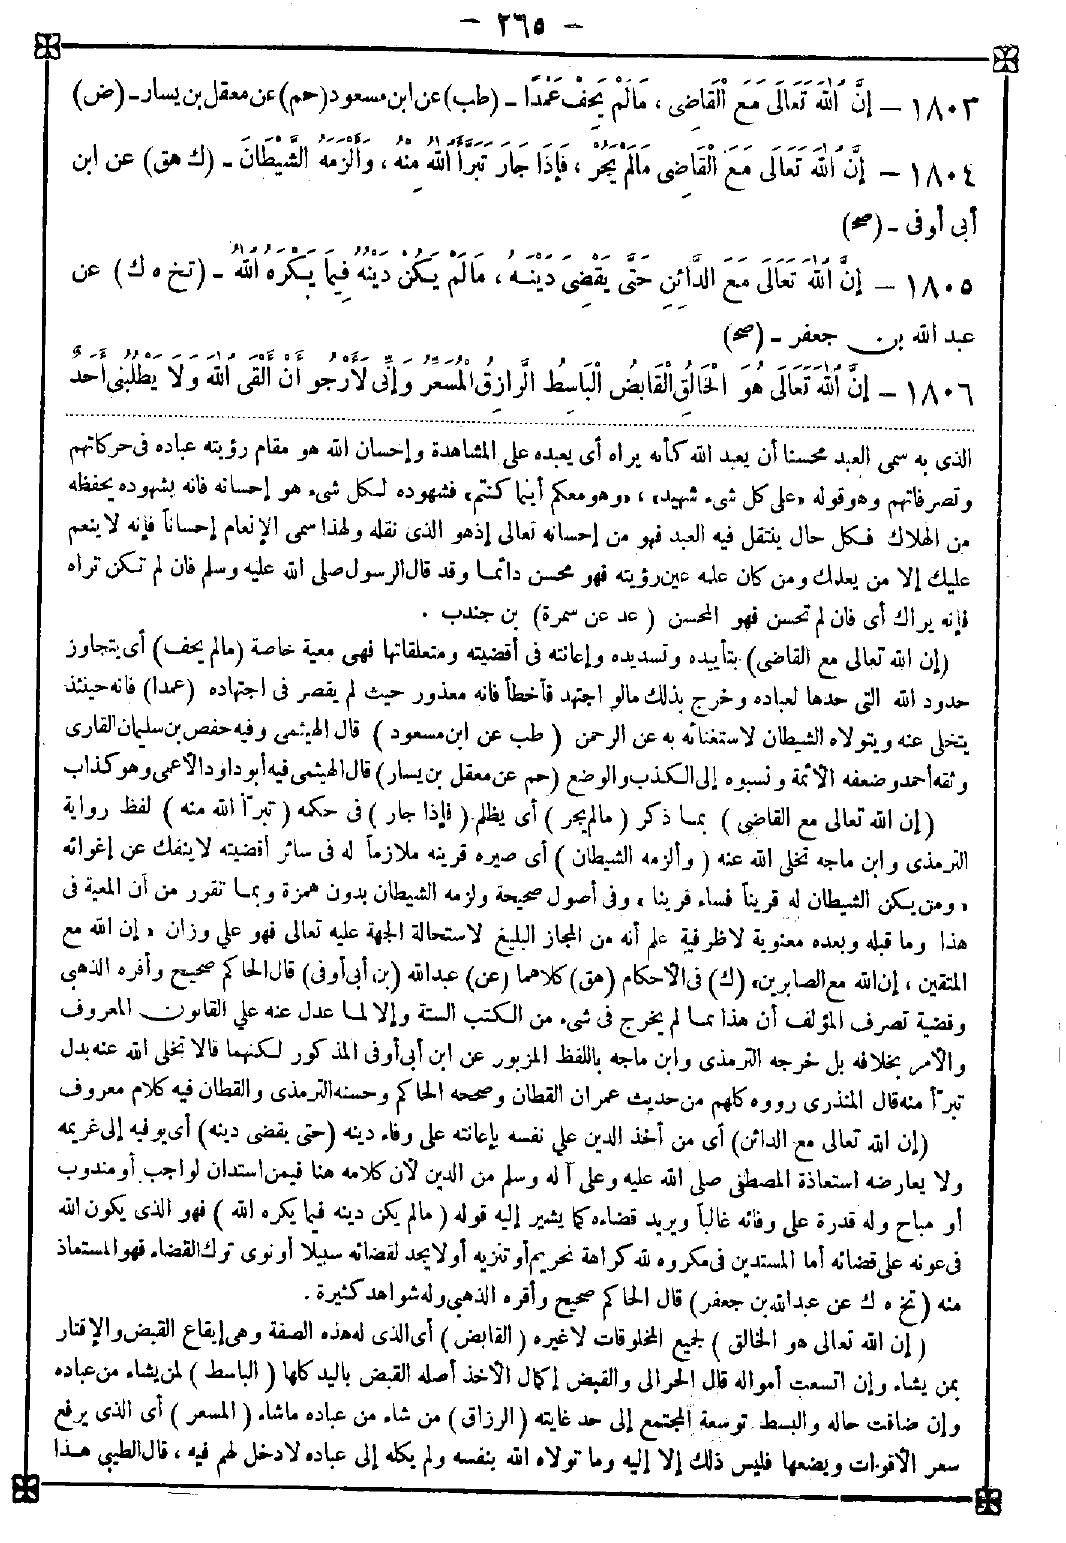 - ٢٦٥ -
١٨٠٣ - إِنَّ اللّٰهَ تَعَالَى مَعَ الْقَاضِى ، مَالَمْ يَحِفْ عَمْدًا - (طب) عن ابن مسعود (حم) عن معقل بن يسار - (ض)
١٨٠٤ - إِنَّ اللّٰهَ تَعَالَى مَعَ الْقَاضِى مَالَمْ يَجُرْ ، فَإِذَا جَارَ تَبَرَّأَ اللّٰهُ مِنْهُ ، وَأَلْزَمَهُ الشَّيْطَانَ - (ك هق) عن ابن
أبى أوفى - (صح)
١٨٠٥ - إِنَّ اللّٰهَ تَعَالَى مَعَ الدَّائِنِ حَتَّى يَقْضِىَ دَيْنَـهُ ، مَالَمْ يَكُنْ دَيْنُهُ فِيمَا يَكْرَهُ اللّٰهُ - (تخ ه ك) عن
عبد الله بن جعفر - (صح)
١٨٠٦ - إِنَّ اللّٰهَ تَعَالَى هُوَ الْخَالِقُ الْقَابِضُ الْبَاسِطُ الرَّازِقُ الْمُسَعِّرُ وَإِنِّى لَأَرْجُو أَنْ أَلْقَى اللّٰهَ وَلَا يَطْلُبُنِى أَحَدٌ
الذى به سمى العبد محسنا أن يعبد الله كأنه يراه أى يعبده على المشاهدة وإحسان الله هو مقام رؤيته عباده فى حركاتهم
وتصرفاتهم وهو قوله «على كل شىء شهيد» ، «وهو معكم أينما كنتم» فشهوده لكل شىء هو إحسانه فانه بشهوده يحفظه
من الهلاك فكل حال ينتقل فيه العبد فهو من إحسانه تعالى إذ هو الذى نقله ولهذا سمى الإنعام إحساناً فإنه لا ينعم
عليك إلا من يعلمك ومن كان علمه عين رؤيته فهو محسن دائما وقد قال الرسول صلى الله عليه وسلم فان لم تكن تراه
فإنه يراك أى فان لم تحسن فهو المحسن ( عد عن سمرة) بن جندب .
(إن الله تعالى مع القاضى) بتأييده وتسديده وإعانته فى أقضيته ومتعلقاتها فهى معية خاصة (مالم يحف) أى يتجاوز
حدود الله التى حدها لعباده وخرج بذلك مالو اجتهد فأخطأ فانه معذور حيث لم يقصر فى اجتهاده (عمدا) فانه حينئذ
يتخلى عنه ويتولاه الشيطان لاستغنائه به عن الرحمن ( طب عن ابن مسعود ) قال الهيثمى وفيه حفص بن سليمان القارى
وثقه أحمد وضعفه الأئمة ونسبوه إلى الكذب والوضع (حم عن معقل بن يسار) قال الهيثمى فيه أبو داود الأعمى وهو كذاب
(إن الله تعالى مع القاضى ) بما ذكر ( مالم يجر ) أى يظلم ( فإذا جار ) فى حكمه ( تبرأ الله منه ) لفظ رواية
الترمذى وابن ماجه تخلى الله عنه ( وألزمه الشيطان ) أى صيره قرينه ملازماً له فى سائر أقضيته لا ينفك عن إغوائه
« ومن يكن الشيطان له قريناً فساء قرينا » وفى أصول صحيحة ولزمه الشيطان بدون همزة وبما تقرر من أن المعية فى
هذا وما قبله وبعده معنوية لا ظرفية علم أنه من المجاز البليغ لاستحالة الجهة عليه تعالى فهو على وزان « إن الله مع
المتقين ، إن الله مع الصابرين» (ك) فى الأحكام (هق) كلاهما (عن) عبدالله (بن أبى أوفى) قال الحاكم صحيح وأقره الذهبى
وقضية تصرف المؤلف أن هذا مما لم يخرج فى شىء من الكتب الستة وإلا لما عدل عنه على القانون المعروف
والأمر بخلافه بل خرجه الترمذى وابن ماجه باللفظ المزبور عن ابن أبى أوفى المذكور لكنهما قالا تخلى الله عنه بدل
تبرأ منه قال المنذرى رووه كلهم من حديث عمران القطان وصححه الحاكم وحسنه الترمذى والقطان فيه كلام معروف
(إن الله تعالى مع الدائن) أى من أخذ الدين على نفسه بإعانته على وفاء دينه (حتى يقضى دينه) أى يوفيه إلى غريمه
ولا يعارضه استعاذة المصطفى صلى الله عليه وعلى آله وسلم من الدين لأن كلامه هنا فيمن استدان لواجب أو مندوب
أو مباح وله قدرة على وفائه غالباً ويريد قضاءه كما يشير إليه قوله ( مالم يكن دينه فيما يكره الله ) فهو الذى يكون الله
فى عونه على قضائه أما المستدين فى مكروه لله كراهة تحريم أو تنزيه أو لا يجد لقضائه سبيلا أو نوى ترك القضاء فهو المستعاذ
منه ( تخ ه ك عن عبدالله بن جعفر) قال الحاكم صحيح وأقره الذهبى وله شواهد كثيرة .
( إن الله تعالى هو الخالق ) لجميع المخلوقات لا غيره ( القابض ) أى الذى له هذه الصفة وهى إيقاع القبض والإقتار
بمن يشاء وإن اتسعت أمواله قال الحرالى والقبض إكمال الأخذ أصله القبض باليد كلها ( الباسط ) لمن يشاء من عباده
وإن ضاقت حاله والبسط توسعة المجتمع إلى حد غايته ( الرزاق ) من شاء من عباده ماشاء ( المسعر ) أى الذى يرفع
سعر الأقوات ويضعها فليس ذلك إلا إليه وما تولاه الله بنفسه ولم يكله إلى عباده لا دخل لهم فيه ، قال الطيبي هذا